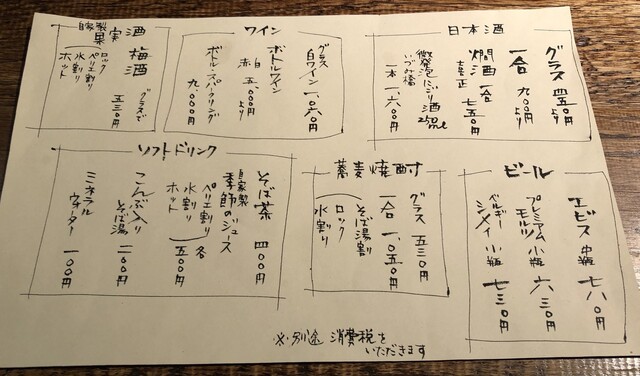 日本酒
グラス 四五〇円より
一合 九〇〇円より
燗酒 一合 七五〇円
微発泡にごり酒 250ml
いづみ橋
一本 一、六〇〇円
ワイン
グラス
白ワイン 一、〇六〇円
ボトルワイン
赤 白 五、〇〇〇円より
ボトル・スパークリング 九、〇〇〇円
自家製
果実酒
梅酒
グラスで 五三〇円
ロック
ペリエ割り
水割り
ホット
ビール
エビス 中瓶 七八〇円
プレミアムモルツ 小瓶 六三〇円
ベルギー
シメイ 小瓶 七三〇円
蕎麦焼酎
グラス 五三〇円
一合 一、〇五〇円
そば湯割り
ロック
水割り
ソフトドリンク
そば茶 四〇〇円
自家製
季節のジュース
ペリエ割り 各
水割り 五〇〇円
ホット
こんぶ入り
そば湯 二〇〇円
ミネラル
ウォーター 一〇〇円
※別途 消費税を
いただきます